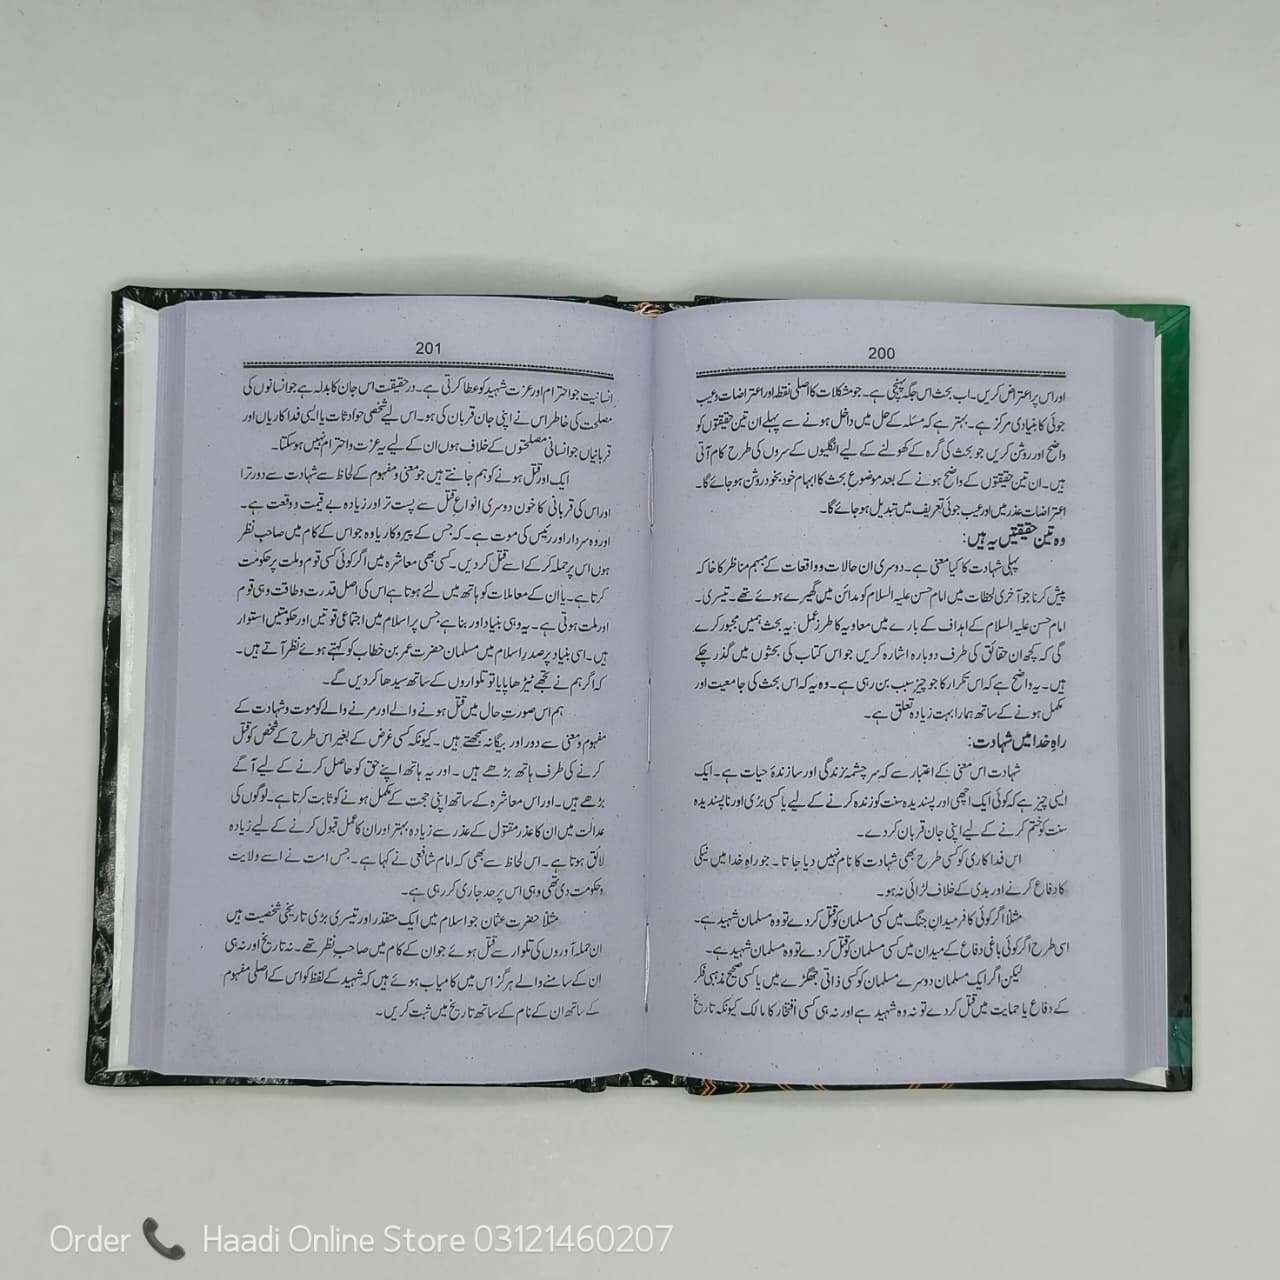 200
اور اس پر اعتراض کریں۔ اب بحث اس جگہ پہنچی ہے۔ جو مشکلات کا اصلی نقطہ اور اعتراضات و عیب
جوئی کا بنیادی مرکز ہے۔ بہتر ہے کہ مسئلہ کے حل میں داخل ہونے سے پہلے ان تین حقیقتوں کو
واضح اور روشن کریں جو بحث کی گرہ کے کھولنے کے لیے انگلیوں کے سروں کی طرح کام آتی
ہیں۔ ان تین حقیقتوں کے واضح ہونے کے بعد موضوع بحث کا ابہام خود بخود روشن ہو جائے گا۔
اعتراضات عذر میں اور عیب جوئی تعریف میں تبدیل ہو جائے گا۔
وہ تین حقیقتیں یہ ہیں:
پہلی شہادت کا کیا معنی ہے۔ دوسری ان حالات و واقعات کے مبہم مناظر کا خاکہ
پیش کرنا جو آخری لحظات میں امام حسن علیہ السلام کو مدائن میں گھیرے ہوئے تھے۔ تیسری۔
امام حسن علیہ السلام کے اہداف کے بارے میں معاویہ کا طرز عمل: یہ بحث ہمیں مجبور کرے
گی کہ کچھ ان حقائق کی طرف دوبارہ اشارہ کریں جو اس کتاب کی بحثوں میں گذر چکے
ہیں۔ یہ واضح ہے کہ اس تکرار کا جو چیز سبب بن رہی ہے۔ وہ یہ کہ اس بحث کی جامعیت اور
مکمل ہونے کے ساتھ ہمارا بہت زیادہ تعلق ہے۔
راہِ خدا میں شہادت:
شہادت اس معنی کے اعتبار سے کہ سر چشمۂ زندگی اور سازندۂ حیات ہے۔ ایک
ایسی چیز ہے کہ کوئی ایک اچھی اور پسندیدہ سنت کو زندہ کرنے کے لیے یا کسی بڑی اور ناپسندیدہ
سنت کو ختم کرنے کے لیے اپنی جان قربان کر دے۔
اس فداکاری کو کسی طرح بھی شہادت کا نام نہیں دیا جاتا۔ جو راہِ خدا میں نیکی
کا دفاع کرنے اور بدی کے خلاف لڑائی نہ ہو۔
مثلاً اگر کوئی کافر میدانِ جنگ میں کسی مسلمان کو قتل کر دے تو وہ مسلمان شہید ہے۔
اسی طرح اگر کوئی باغی دفاع کے میدان میں کسی مسلمان کو قتل کر دے تو وہ مسلمان شہید ہے۔
لیکن اگر ایک مسلمان دوسرے مسلمان کو کسی ذاتی جھگڑے میں یا کسی صحیح مذہبی فکر
کے دفاع یا حمایت میں قتل کر دے تو نہ وہ شہید ہے اور نہ ہی کسی افتخار کا مالک کیونکہ تاریخ
201
انسانیت جو احترام اور عزت شہید کو عطا کرتی ہے۔ در حقیقت اس جان کا بدلہ ہے جو انسانوں کی
مصلحت کی خاطر اس نے اپنی جان قربان کی ہو۔ اس لیے شخصی حوادثات یا ایسی فداکاریاں اور
قربانیاں جو انسانی مصلحتوں کے خلاف ہوں ان کے لیے یہ عزت و احترام نہیں ہو سکتا۔
ایک اور قتل ہونے کو ہم جانتے ہیں جو معنی و مفہوم کے لحاظ سے شہادت سے دور ترا
اور اس کی قربانی کا خون دوسری انواعِ قتل سے پست تر اور زیادہ بے قیمت و وقعت ہے۔
اور وہ سردار اور رئیس کی موت ہے۔ کہ جس کے پیروکار یا وہ جو اس کے کام میں صاحب نظر
ہوں اس پر حملہ کر کے اسے قتل کر دیں۔ کسی بھی معاشرہ میں اگر کوئی کسی قوم و ملت پر حکومت
کرتا ہے۔ یا ان کے معاملات کو ہاتھ میں لئے ہوتا ہے اس کی اصل قدرت و طاقت وہی قوم
اور ملت ہوتی ہے۔ یہ وہی بنیاد اور بنا ہے جس پر اسلام میں اجتماعی قوتیں اور حکومتیں استوار
ہیں۔ اسی بنیاد پر صدرِ اسلام میں مسلمان حضرت عمر بن خطاب کو کہتے ہوئے نظر آتے ہیں۔
کہ اگر ہم نے تجھے ٹیڑھا پایا تو تلواروں کے ساتھ سیدھا کر دیں گے۔
ہم اس صورتِ حال میں قتل ہونے والے اور مرنے والے کو موت و شہادت کے
مفہوم و معنی سے دور اور بیگانہ سمجھتے ہیں۔ کیونکہ کسی غرض کے بغیر اس طرح کے شخص کو قتل
کرنے کی طرف ہاتھ بڑھے ہیں۔ اور یہ ہاتھ اپنے حق کو حاصل کرنے کے لیے آگے
بڑھے ہیں۔ اور اس معاشرہ کے ساتھ اپنی حجت کے مکمل ہونے کو ثابت کرتا ہے۔ لوگوں کی
عدالت میں ان کا عذر مقتول کے عذر سے زیادہ بہتر اور ان کا عمل قبول کرنے کے لیے زیادہ
لائق ہوتا ہے۔ اس لحاظ سے بھی کہ امام شافعی نے کہا ہے۔ جس امت نے اسے ولایت
و حکومت دی تھی وہی اس پر حد جاری کر رہی ہے۔
مثلاً حضرت عثمان جو اسلام میں ایک متقدر اور تیسری بڑی تاریخی شخصیت ہیں
ان حملہ آوروں کی تلوار سے قتل ہوئے جو ان کے کام میں صاحب نظر تھے۔ نہ تاریخ اور نہ ہی
ان کے سامنے والے ہرگز اس میں کامیاب ہوئے ہیں کہ شہید کے لفظ کو اس کے اصلی مفہوم
کے ساتھ ان کے نام کے ساتھ تاریخ میں ثبت کریں۔
Order Haadi Online Store 03121460207